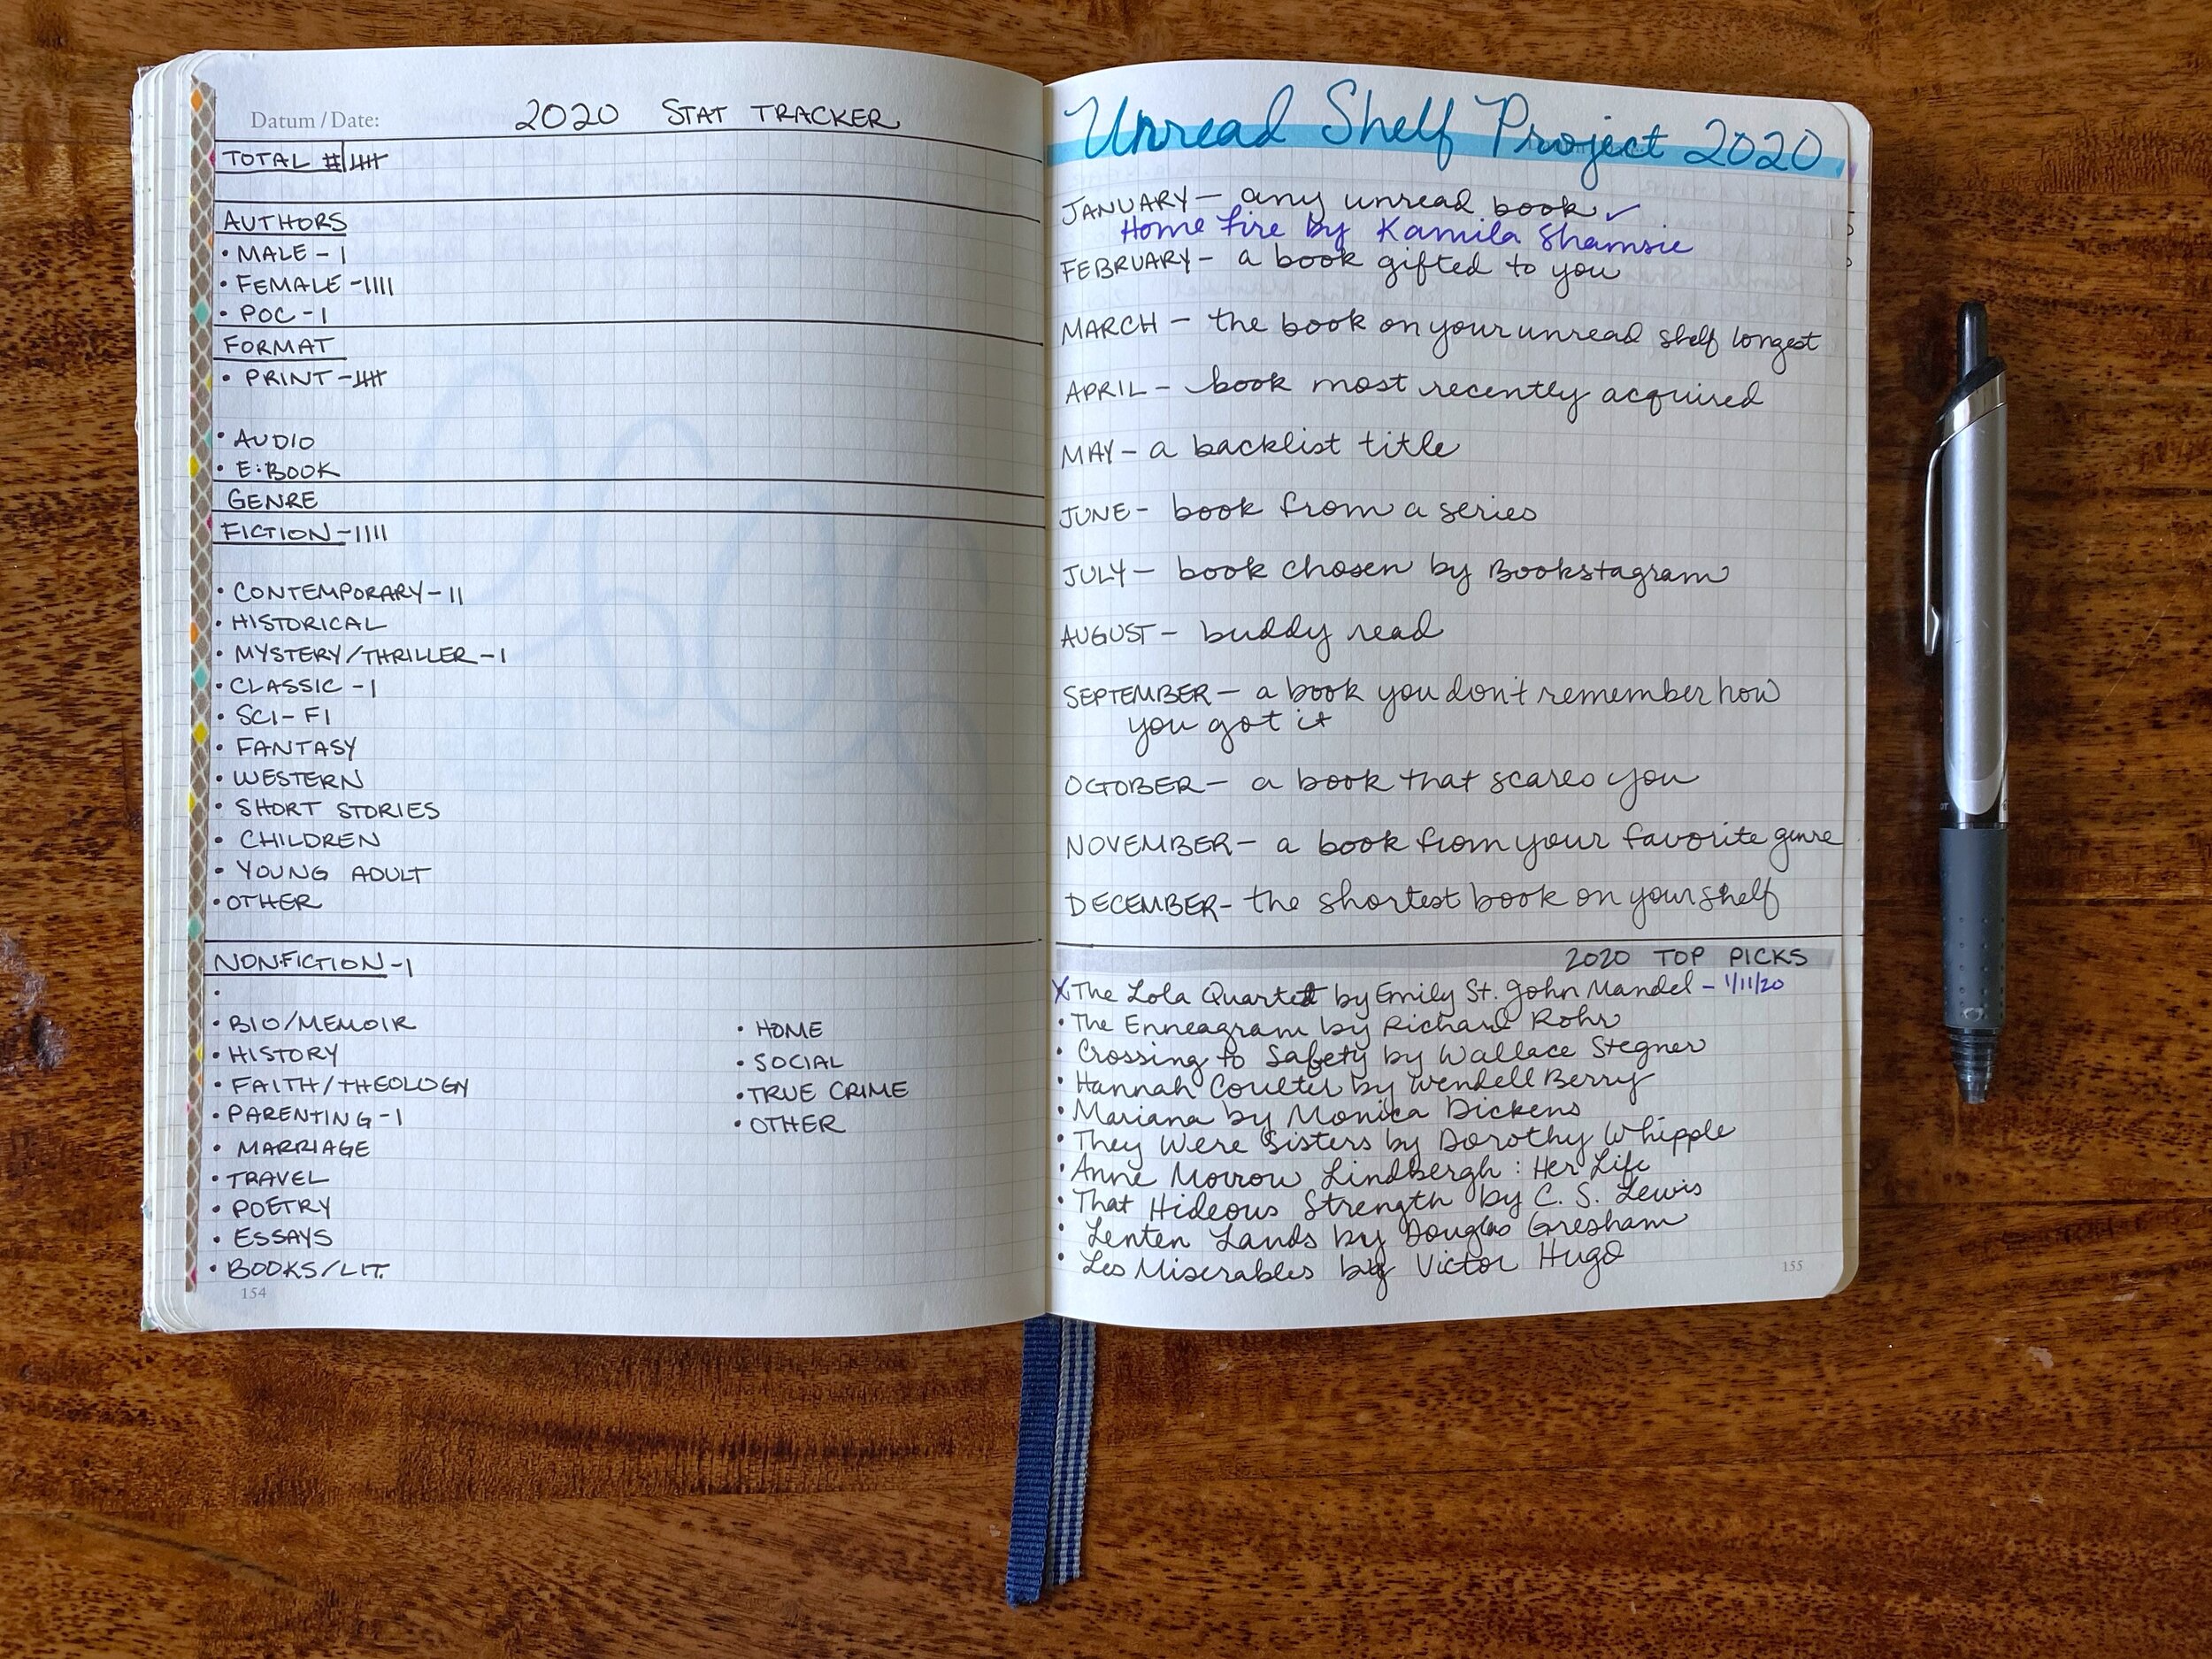 Datum / Date:
2020 STAT TRACKER
TOTAL # 卌
AUTHORS
• MALE - I
• FEMALE - IIII
• POC - I
FORMAT
• PRINT - 卌
• AUDIO
• E:BOOK
GENRE
FICTION - IIII
• CONTEMPORARY - II
• HISTORICAL
• MYSTERY/THRILLER - I
• CLASSIC - I
• SCI-FI
• FANTASY
• WESTERN
• SHORT STORIES
• CHILDREN
• YOUNG ADULT
• OTHER
NONFICTION - I
•
• BIO/MEMOIR
• HISTORY
• FAITH/THEOLOGY
• PARENTING - I
• MARRIAGE
• TRAVEL
• POETRY
• ESSAYS
• BOOKS/LIT.
• HOME
• SOCIAL
• TRUE CRIME
• OTHER
154
Unread Shelf Project 2020
JANUARY - any unread book ✓
Home Fire by Kamila Shamsie
FEBRUARY - a book gifted to you
MARCH - the book on your unread shelf longest
APRIL - book most recently acquired
MAY - a backlist title
JUNE - book from a series
JULY - book chosen by Bookstagram
AUGUST - buddy read
SEPTEMBER - a book you don't remember how
you got it
OCTOBER - a book that scares you
NOVEMBER - a book from your favorite genre
DECEMBER - the shortest book on your shelf
2020 TOP PICKS
X The Lola Quartet by Emily St. John Mandel - 1/11/20
• The Enneagram by Richard Rohr
• Crossing to Safety by Wallace Stegner
• Hannah Coulter by Wendell Berry
• Mariana by Monica Dickens
• They Were Sisters by Dorothy Whipple
• Anne Morrow Lindbergh: Her Life
• That Hideous Strength by C. S. Lewis
• Lenten Lands by Douglas Gresham
• Les Miserables by Victor Hugo
155